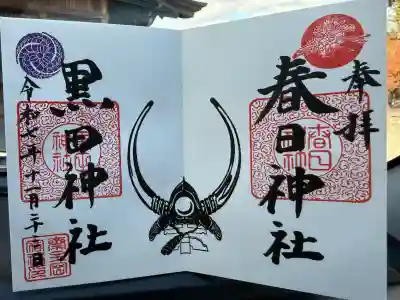 奉拝
春日神社
黒田神社
令和七年十一月二十二日